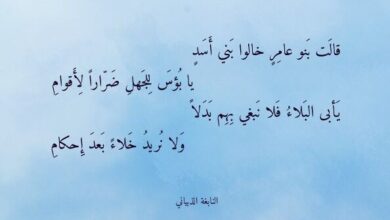 قالَت بَنو عامِرٍ خالوا بَني أَسَدٍ
يا بُؤسَ لِلجَهلِ ضَرّاراً لِأَقوامِ
يَأبى البَلاءُ فَلا نَبغي بِهِم بَدَلاً
وَلا نُريدُ خَلاءً بَعدَ إِحكامِ
النابغة الذبياني